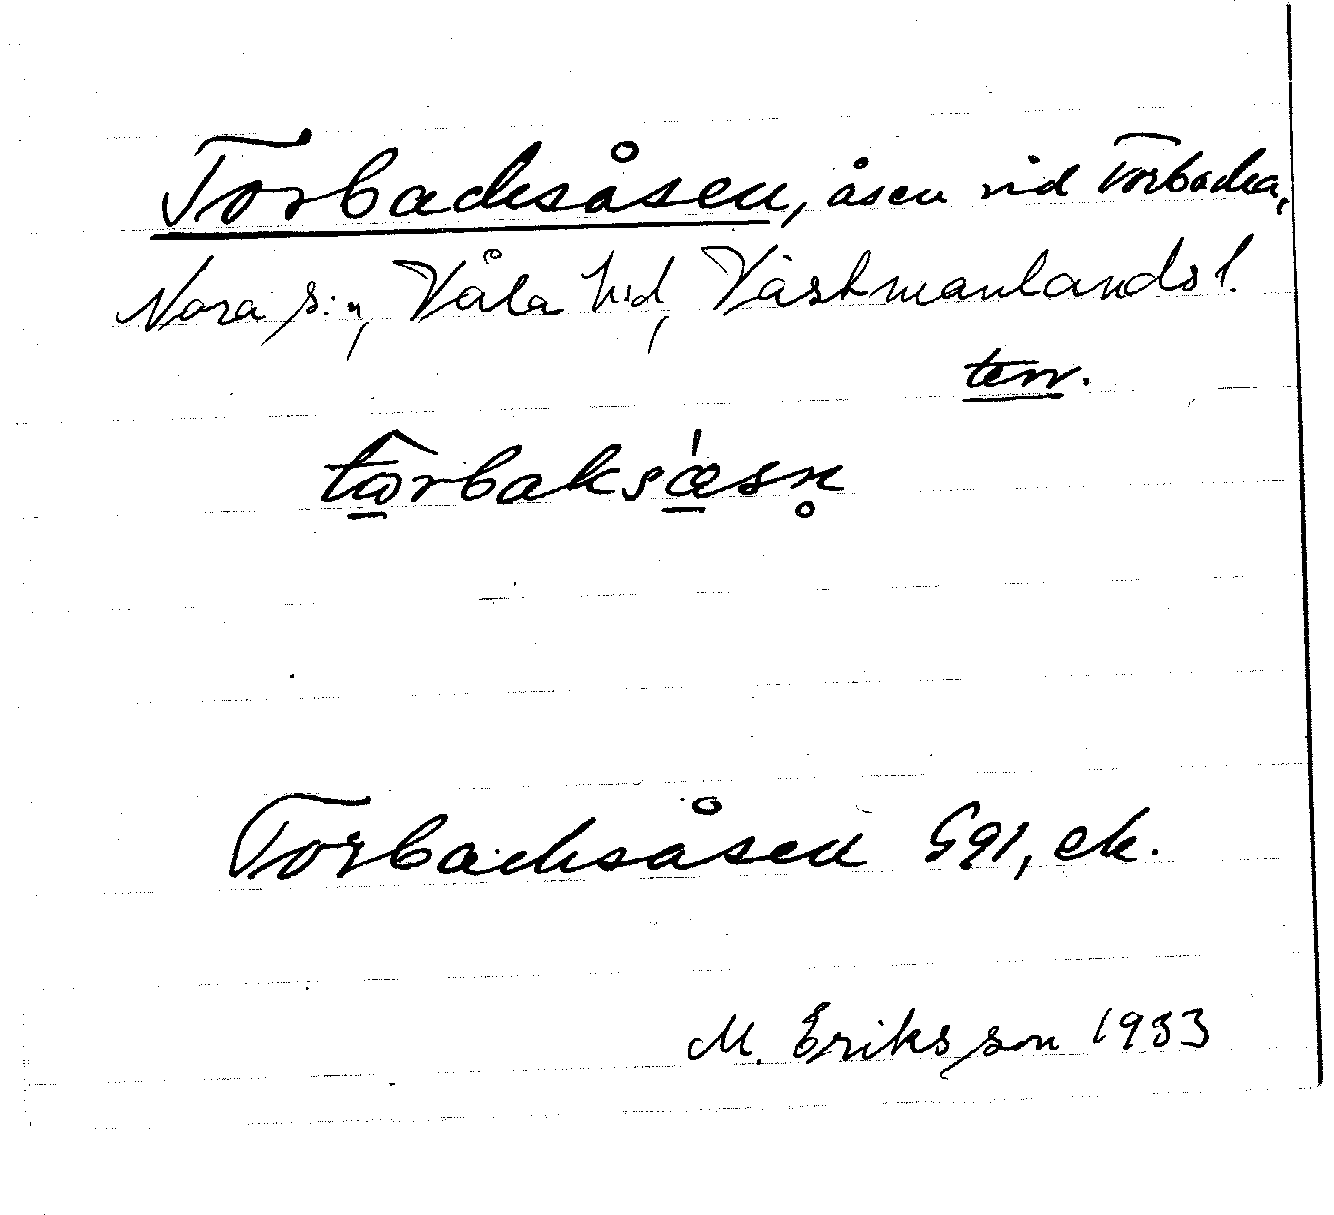 Torbacksåsen, åsen vid Torbacka,
Nora s:n, Våla hd, Västmanlands l.
terr.
Torbacksåsen G91, ek.
M. Eriksson 1933